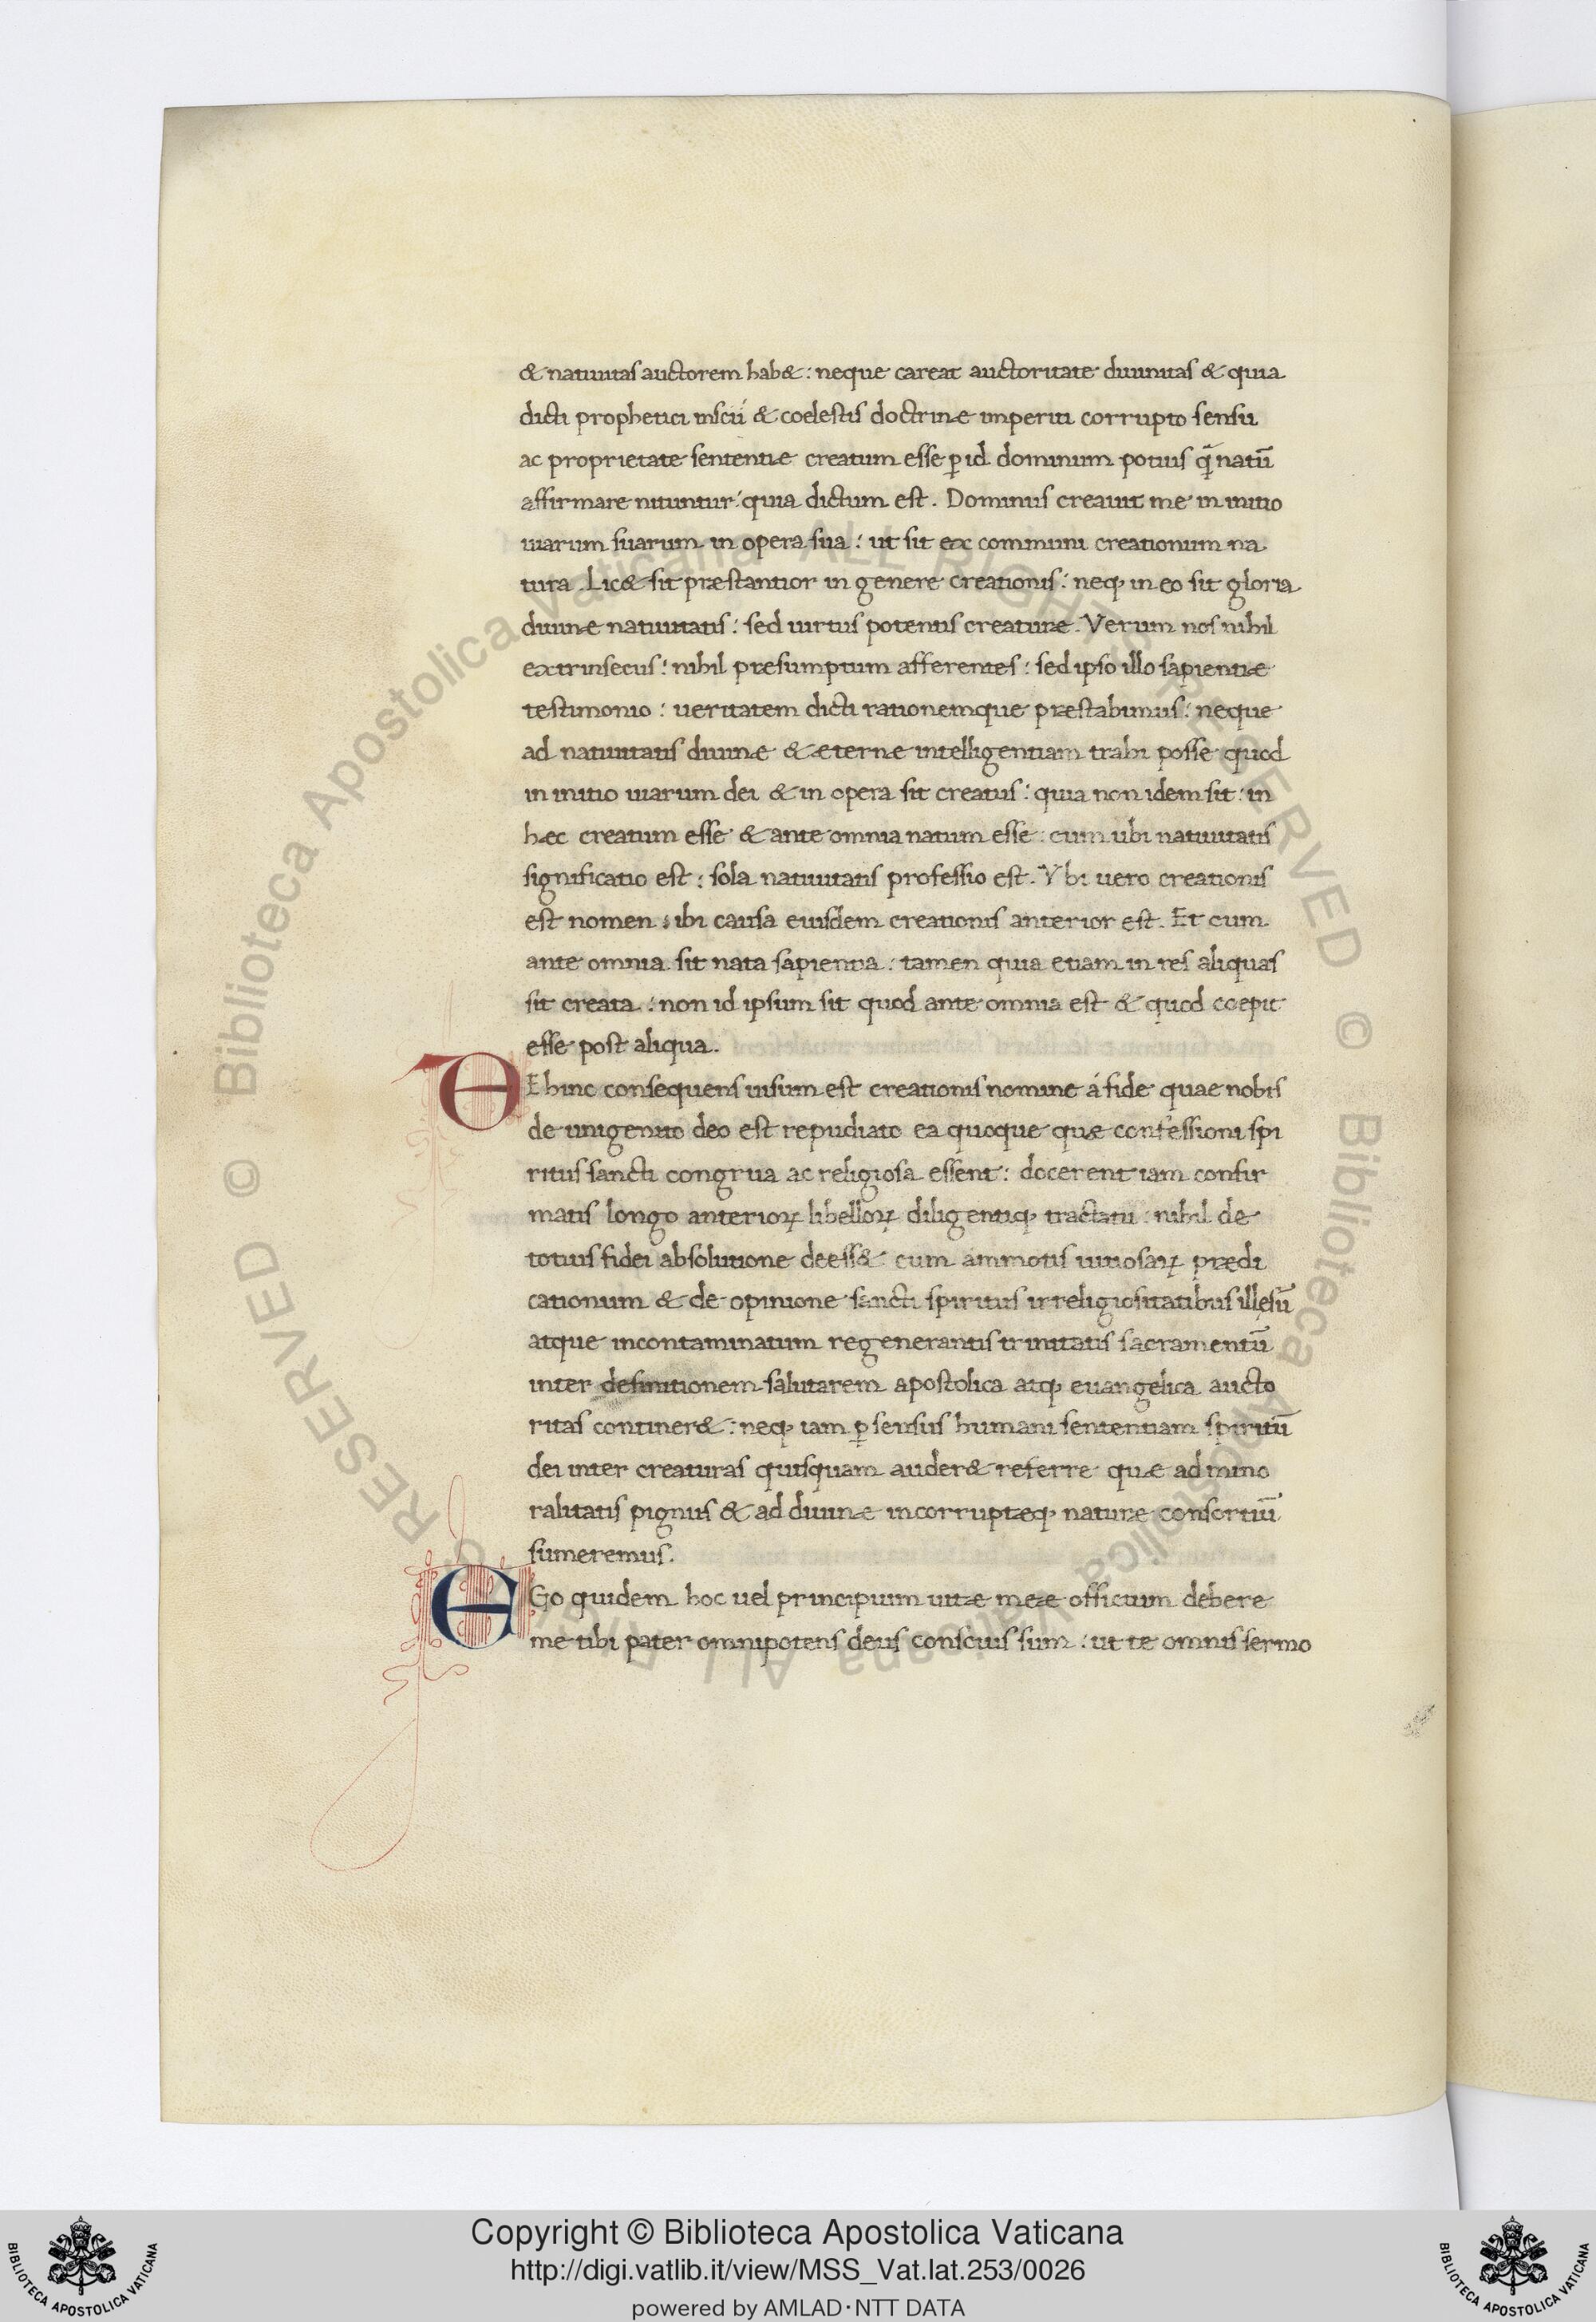 & natiuitas auctorem hab&: neque careat auctoritate diuinitas & quia
dicti prophetici inscií & coelestis doctrinæ imperiti corrupto sensu
ac proprietate sententiæ creatum esse ꝑ id dominum potius q̃ natū
affirmare nituntur: quia dictum est. Dominus creauit me in initio
uiarum suarum in opera sua: ut sit ex communi creationum na
tura. Lic& sit præstantior in genere creationis: neq; in eo sit gloria
diuinæ natiuitatis: sed uirtus potentis creaturæ. Verum nos nihil
extrinsecus: nihil presumptum afferentes: sed ipso illo sapientiæ
testimonio: ueritatem dicti rationemque præstabimus: neque
ad natiuitatis diuinæ & æternæ intelligentiam trahi posse quod
in initio uiarum dei & in opera sit creatus: quia non idem sit: in
hæc creatum esse & ante omnia natum esse: cum ubi natiuitatis
significatio est: sola natiuitatis professio est. Vbi uero creationis
est nomen: ibi causa eiusdem creationis anterior est. Et cum
ante omnia sit nata sapientia: tamen quia etiam in res aliquas
sit creata: non id ipsum sit quod ante omnia est & quod coepit
esse post aliqua.
DEhinc consequens uisum est creationis nomine á fide quae nobis
de unigenito deo est repudiato ea quoque quæ confessioni spi
ritus sancti congrua ac religiosa essent: docerent iam confir
matis longo anterioꝝ libelloꝝ diligentiq; tractatu: nihil de
totius fidei absolutione deess& cum ammotis uitiosaꝝ prædi
cationum & de opinione sancti spiritus irreligiositatibus illęsū
atque incontaminatum regenerantis trinitatis sacramentū
inter definitionem salutarem apostolica atq; euangelica aucto
ritas contener&: neq; iam ꝑ sensus humani sententiam spiritū
dei inter creaturas quisquam auder& referre quæ ad inmo
ralitatis pignus & ad diuinæ incorruptæq; naturæ consortiū
sumeremus.
EGo quidem hoc uel principium uitæ meæ officium debere
me tibi pater omnipotens deus conscius sum: ut te omnis sermo
Copyright © Biblioteca Apostolica Vaticana
http://digi.vatlib.it/view/MSS_Vat.lat.253/0026
powered by AMLAD·NTT DATA
BIBLIOTECA APOSTOLICA VATICANA
BIBLIOTECA APOSTOLICA VATICANA
© Biblioteca Apostolica Vaticana ALL RIGHTS RESERVED © Biblioteca Apostolica Vaticana ALL RIGHTS RESERVED